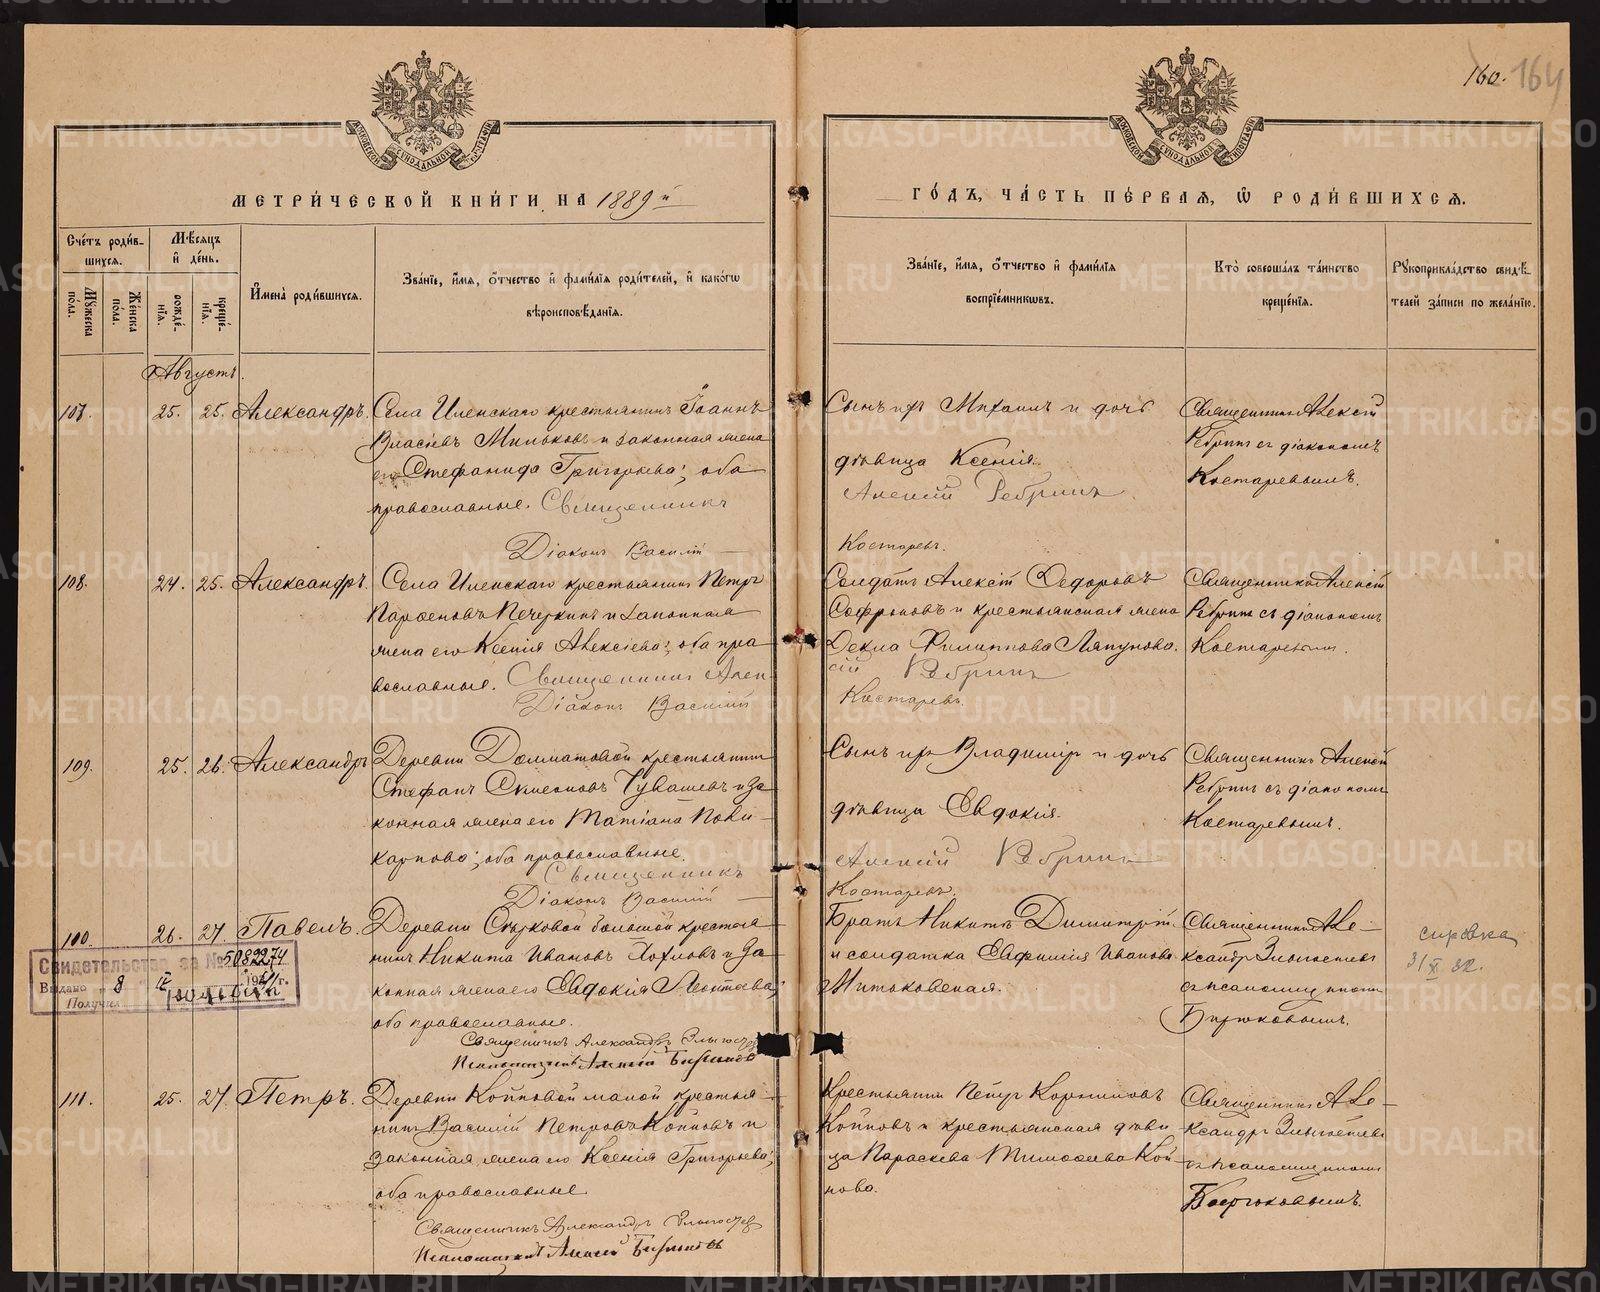 160. 164
МОСКОВСКОЙ СУНОДАЛЬНОЙ ТИПОГРАФІИ
МОСКОВСКОЙ СУНОДАЛЬНОЙ ТИПОГРАФІИ
МЕТРИ́ЧЕСКОЙ КНИ́ГИ НА 1889й
ГО́ДЪ, ЧА́СТЬ ПЕ́РВАѦ, Ѡ҆ РОДИ́ВШИХСѦ.
Сче́тъ роди́в-
шихсѧ.
Мꙋ́жеска по́ла.
Же́нска по́ла.
Мѣ́сѧцъ
и҆ де́нь.
рожде́-
нїѧ.
креще́-
нїѧ.
И҆мена̀ роди́вшихсѧ.
Зва́нїе, и҆́мѧ, ѻ҆́тчество и҆ фами́лїѧ роди́телей, и҆ како́гѡ
вѣроисповѣ́данїѧ.
Зва́нїе, и҆́мѧ, ѻ҆́тчество и҆ фами́лїѧ
воспрїе́мникѡвъ.
Кто̀ соверша́лъ та́инство
креще́нїѧ.
Рꙋкоприкла́дство свидѣ́-
телей за́писи по жела́нїю.
Августъ.
107. 25. 25. Александръ.
Села Иленскаго крестьянинъ Іоаннъ
Власіевъ Миньковъ и законная жена
его Стефанида Григорьева; оба
православные. Священникъ
Діаконъ Василій
Сынъ ихъ Михаилъ и дочь
дѣвица Ксенія.
Алексій Ребринъ
Костаревъ.
Священникъ Алексій
Ребринъ съ діакономъ
Костаревымъ.
108. 24. 25. Александръ.
Села Иленскаго крестьянинъ Петръ
Парѳеновъ Печеркинъ и законная
жена его Ксенія Алексіева; оба пра
вославные. Священникъ Алек
Діаконъ Василій
Солдатъ Алексій Ѳедоровъ
Софроновъ и крестьянская жена
Ѳекла Филиппова Ляпунова.
сій Ребринъ
Костаревъ.
Священникъ Алексій
Ребринъ съ діакономъ
Костаревымъ.
109. 25. 26. Александръ
Деревни Долматовой крестьянинъ
Стефанъ Симеоновъ Чувашевъ и за
конная жена его Татіана Поли-
карпова; оба православные.
Священникъ
Діаконъ Василій
Сынъ ихъ Владиміръ и дочь
дѣвица Евдокія.
Алексій Ребринъ
Костаревъ.
Священникъ Алексій
Ребринъ съ діакономъ
Костаревымъ.
100. 26. 27. Павелъ.
Деревни большой крестья-
нинъ Никита Ивановъ Хохловъ и за
конная жена его Евдокія Леонтьева;
оба православные.
Священникъ Александръ
Псаломщикъ Алексій Бирюковъ
Братъ Никиты Димитрій
и солдатка Евфимія Иванова
Митюковская.
Священникъ Але-
ксандръ
съ псаломщикомъ
Бирюковымъ.
Свидетельство за № 5082274
Выдано 8 IV 19
Получил
справка
31/X 82.
111. 25. 27. Петръ.
Деревни Койновой малой крестья-
нинъ Василій Петровъ Койновъ и
законная жена его Ксенія Григорьева;
оба православные.
Священникъ Александръ
Псаломщикъ Алексій Бирюковъ
Крестьянинъ Петръ Корниловъ
Койновъ и крестьянская дѣви
ца Параскева Тимоѳеева Кой
нова.
Священникъ Але-
ксандръ
съ псаломщикомъ
Бирюковымъ.
METRIKI.GASO-URAL.RU